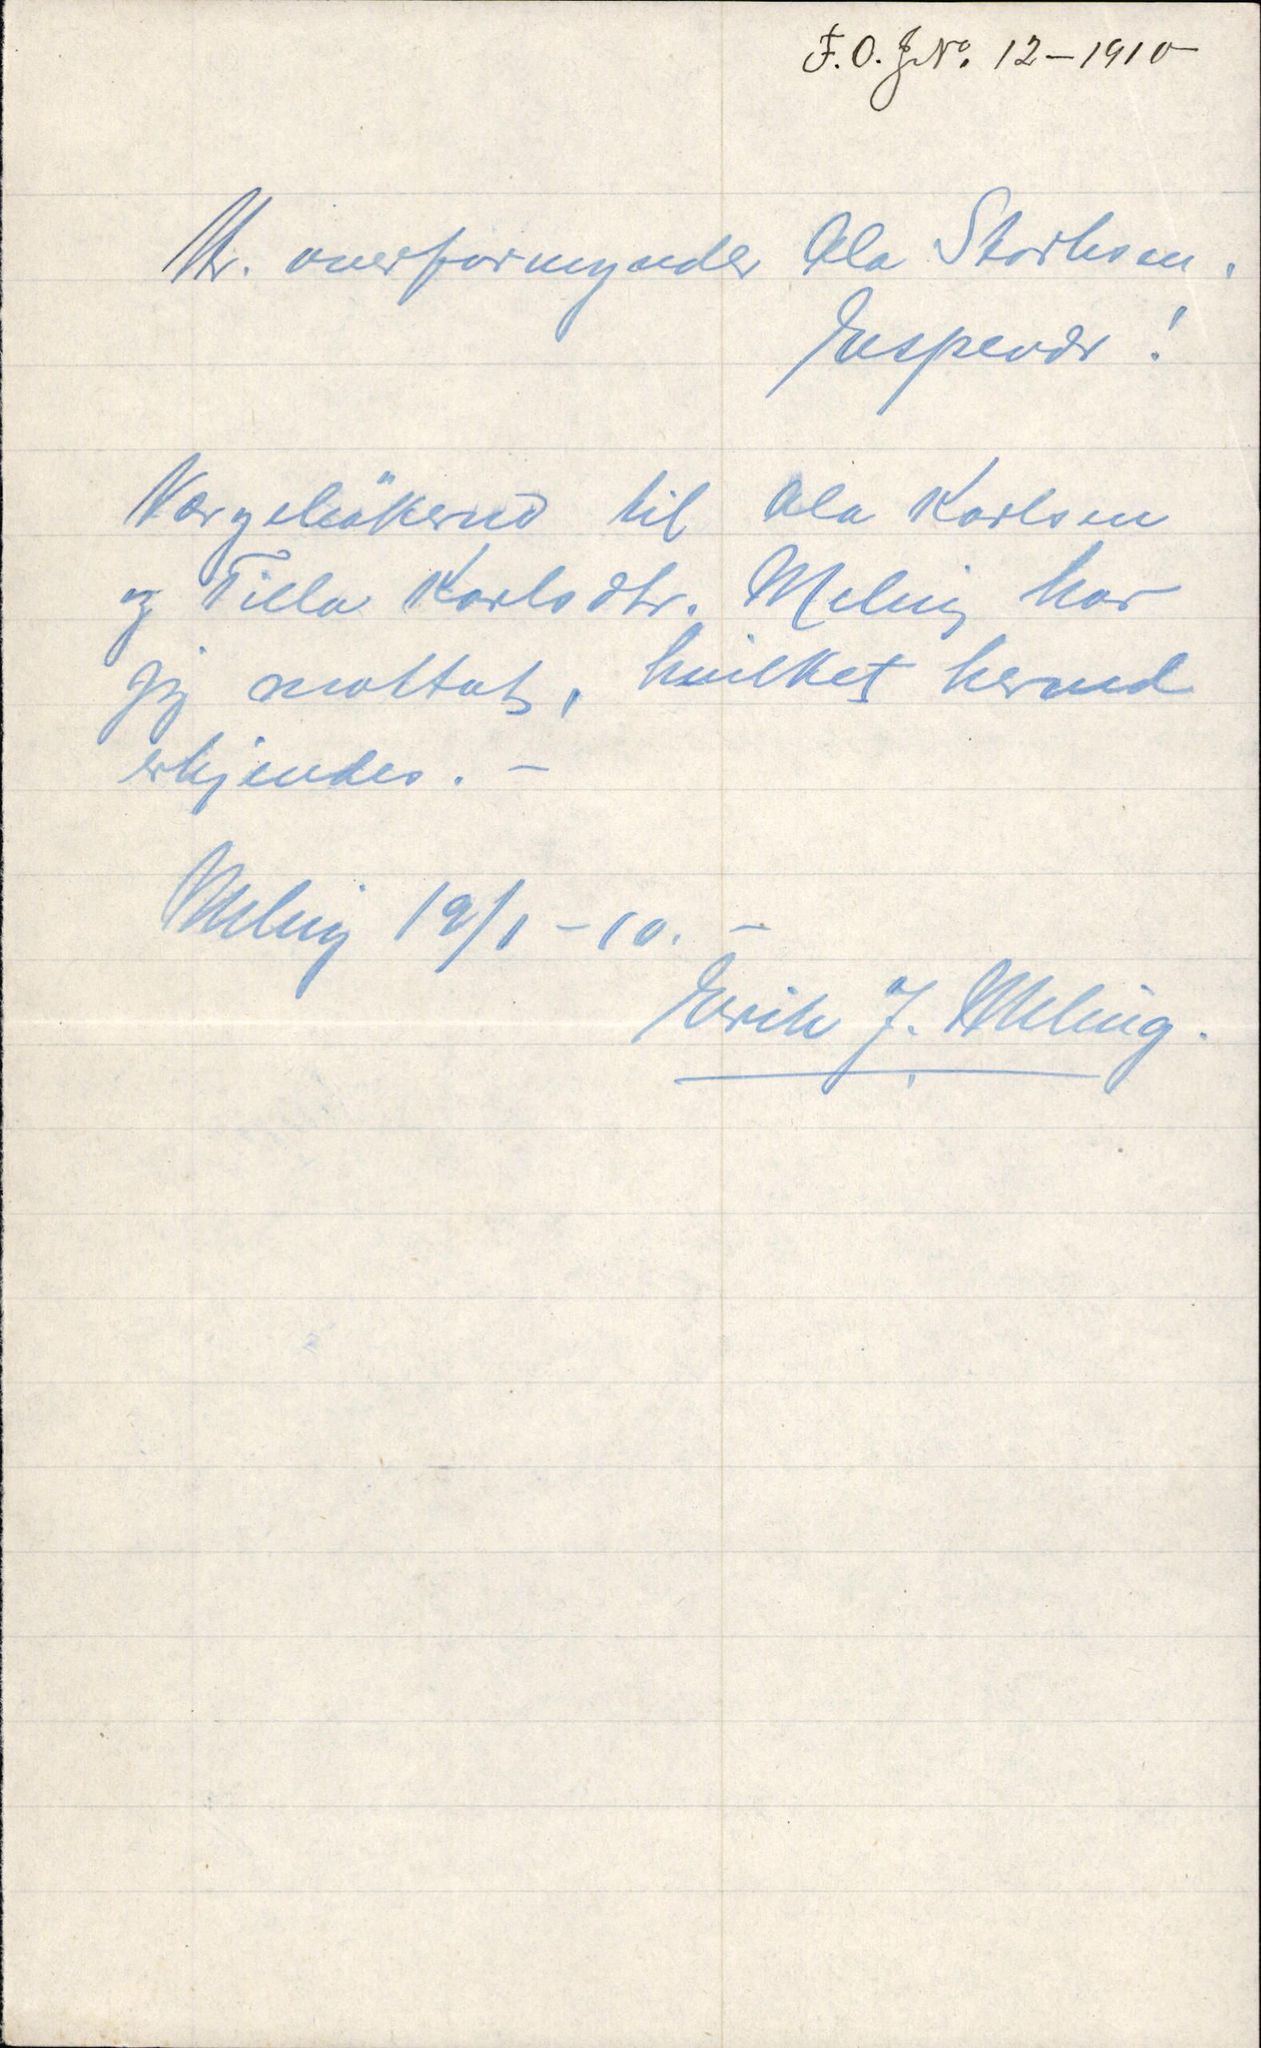 F. O. J No. 12 – 1910
Hr. overformynder Ola Storksen.
Espevær!
Værgebökerne til Ola Karlsen
og Tilla Karlsdtr. Meling har
jeg mottat, hvilket hermed
erkjendes. –
Meling 19/1 – 10. –
Eerik J. Meling.